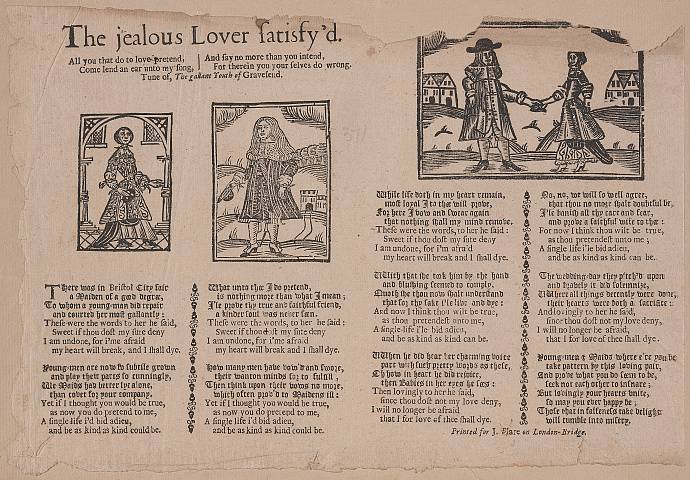 The jealous Lover satisfy'd.
All you that do to love pretend,
Come lend an ear unto my song,
And say no more than you intend,
For therein you your selves do wrong.
Tune of, The gallant Youth of Gravesend.
There was in Bristol City fair
a Maiden of a good degree,
To whom a young-man did repair
and courted her most gallantly:
These were the words, to her he said,
Sweet if thou dost my sute deny
I am undone, for i'me afraid
my heart will break, and I shall dye.
Young-men are now so subtile grown
and play their parts so cunningly,
We Maids had better lye alone,
than covet for your company.
Yet if I thought you would be true,
as now you do pretend to me,
A single life i'd bid adieu,
and be as kind as kind could be.
What unto thee I do pretend,
is nothing more than what I mean;
I'le prove thy true and faithful friend,
a kinder soul was never seen.
These were the words, to her he said:
Sweet if thou dost my sute deny
I am undone, for i'me afraid
my heart will break and I shall dye.
How many men have vow'd and swore,
their wanton minds for to fulfill,
Then think upon their vows no more,
which often prov'd to Maidens ill:
Yet if I thought you would be true,
as now you do pretend to me,
A single life i'd bid adieu,
and be as kind as kind could be.
While life doth in my heart remain,
most loyal I to thee will prove,
For here I vow and swear again
that nothing shall my mind remove.
These were the words, to her he said:
Sweet if thou dost my sute deny
I am undone, for i'm afra'd
my heart will break and I shall dye.
With that she took him by the hand
and blushing seemed to comply,
Quoth she thou shalt understand
that for thy sake i'le live and dye:
And now I think thou wilt be true,
as thou pretendest unto me,
A single-life i'le bid adieu,
and be as kind as kind can be.
When he did hear her charming voice
part with such pretty words as these,
Oh how in heart he did rejoice,
then Babies in her eyes he sees:
Then lovingly to her he said,
since thou dost not my love deny,
I will no longer be afraid
that I for love of thee shall dye.
No, no, we will so well agree,
that thou no more shalt doubtful be,
I'le banish all thy care and fear,
and prove a faithful wife to thee:
For now I think thou wilt be true,
as thou pretendest unto me;
A single life i'le bid adieu,
and be as kind as kind can be.
The wedding-day they pitch'd upon
and bravely it did solemnize,
Where all things decently were done,
their hearts were both a sacrifice:
And lovingly to her he said,
since thou dost not my love deny,
I will no longer be afraid,
that I for love of thee shall dye.
Young-men & Maids where e're you be
take pattern by this loving pair,
And prove what you do seem to be,
seek not each other to insnare;
But lovingly your hearts unite,
so may you ever happy be;
Those that in falseness take delight
will tumble into misery.
Printed for J. Blare on London-Bridge.